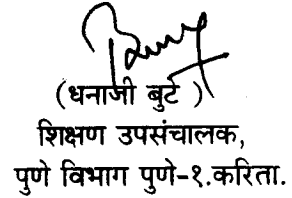 (धनाजी बुटे )
शिक्षण उपसंचालक,
पुणे विभाग पुणे-१.करिता.